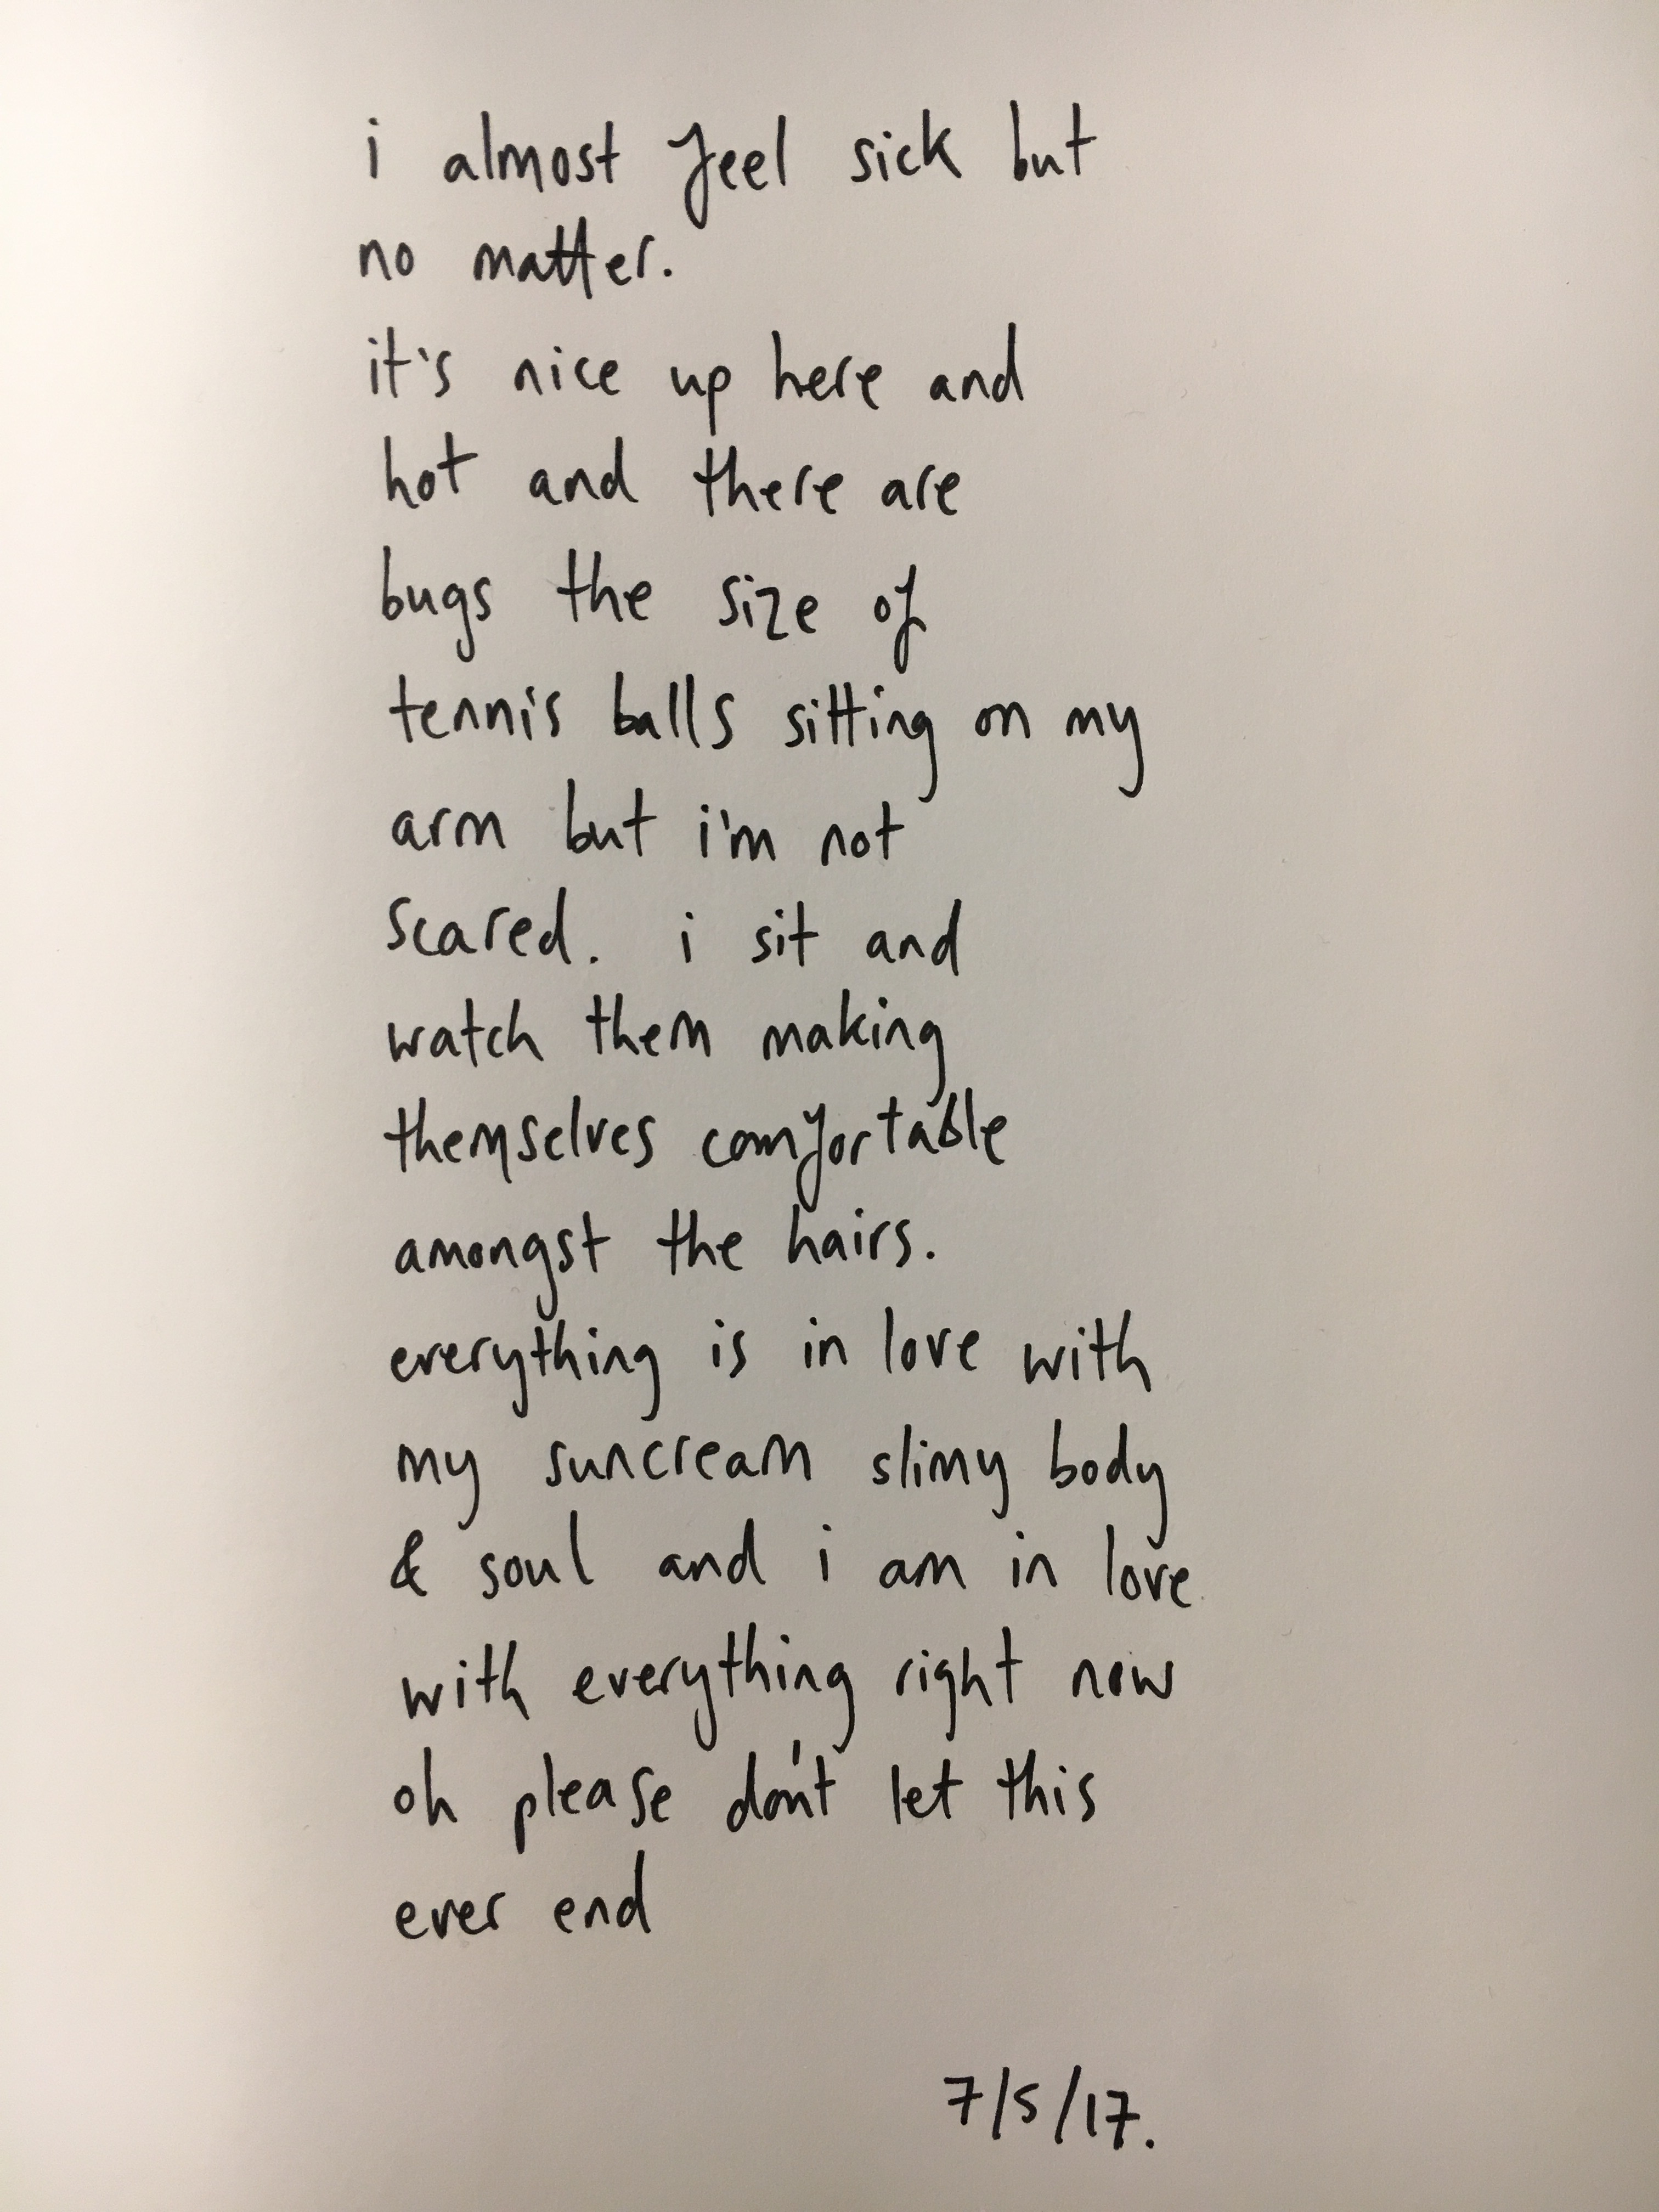 i almost feel sick but
no matter.
it's nice up here and
hot and there are
bugs the size of
tennis balls sitting on my
arm but i'm not
scared. i sit and
watch them making
themselves comfortable
amongst the hairs.
everything is in love with
my suncream slimy body
& soul and i am in love
with everything right now
oh please don't let this
ever end
7/5/17.